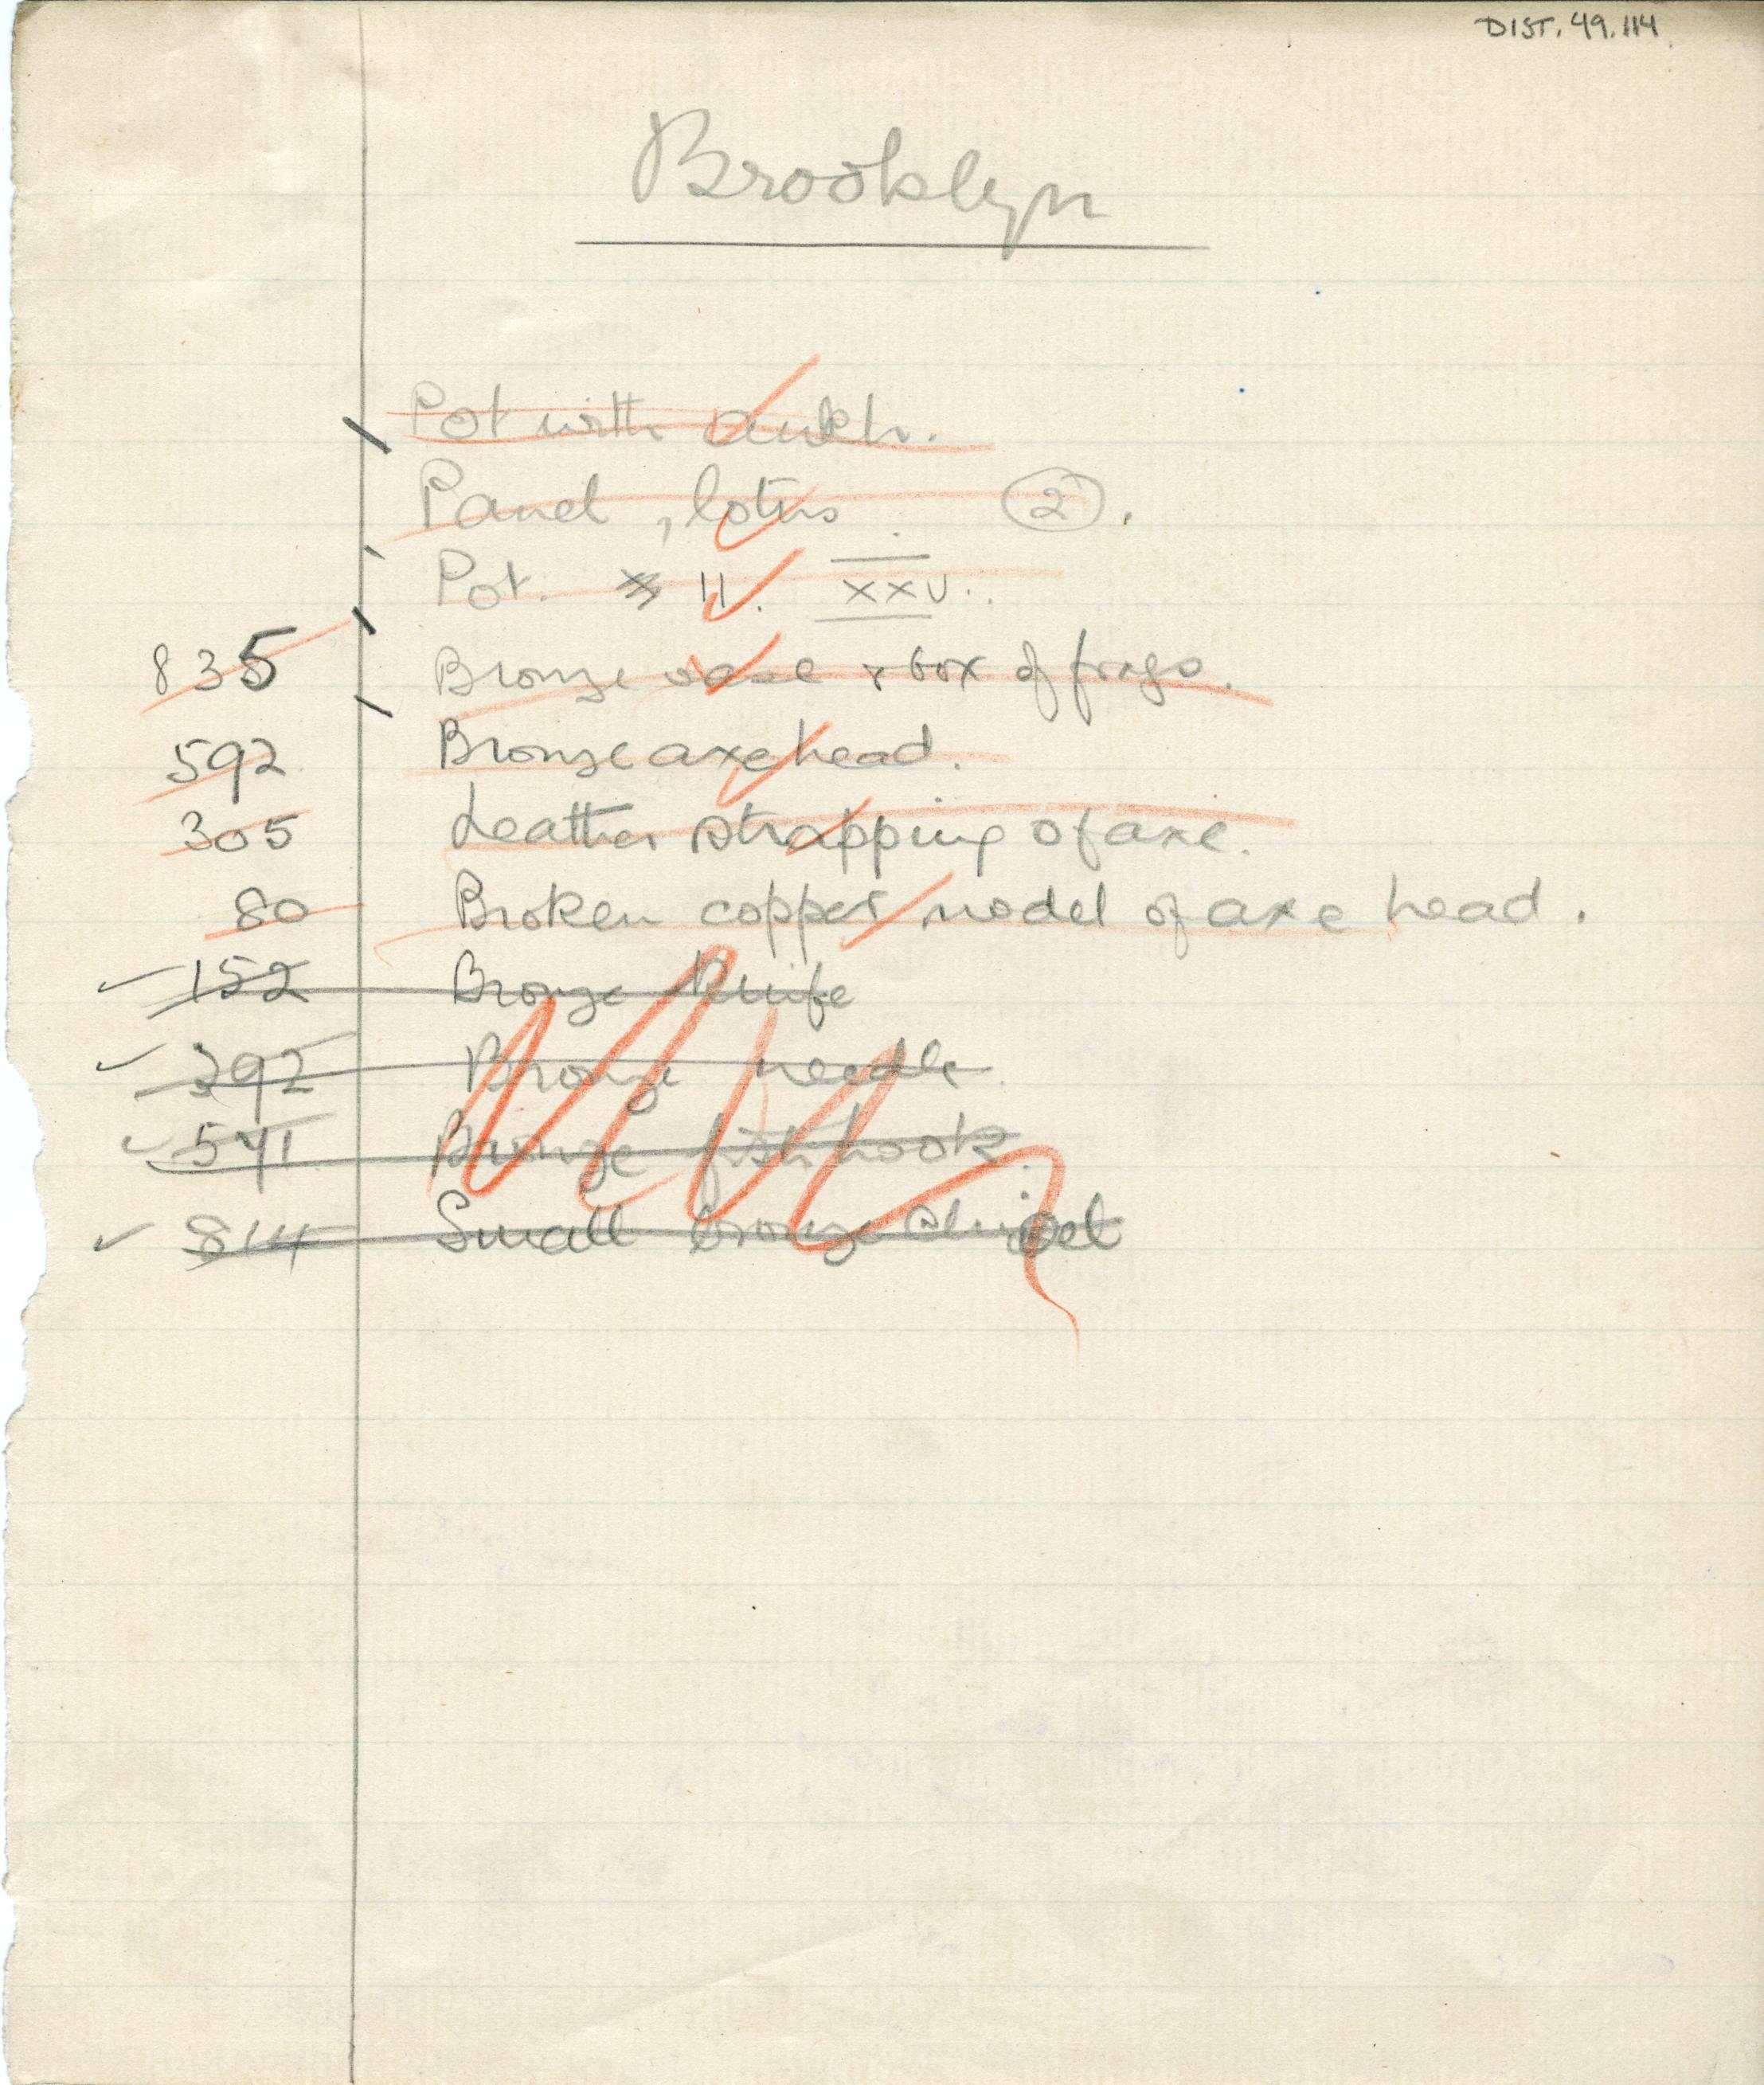 DIST. 49.114
Brooklyn
Pot with ankh.
Panel, lotus 2.
Pot. 11. XXV.
835 Bronze vase & box of frogs.
592 Bronze axe head.
305 Leather strapping of axe.
80 Broken copper model of axe head.
152 Bronze knife
392 Bronze needle.
541 Bronze fish hook.
814 Small bronze chisel